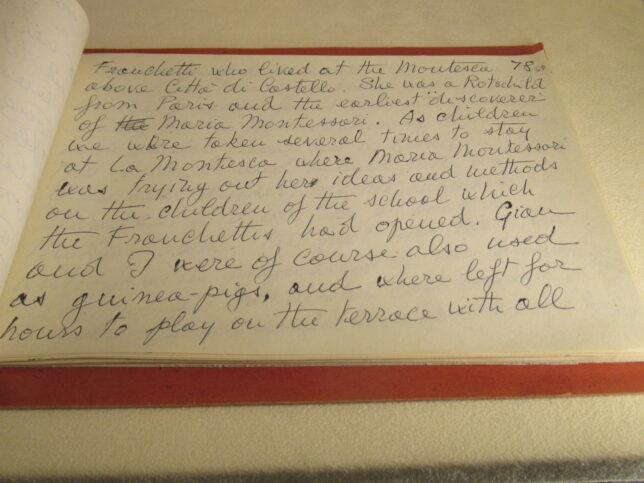 Franchetti who lived at the Montesca 78
above Città di Castello. She was a Rotschild
from Paris and the earliest discoverer
of the Maria Montessori. As children
we where taken several times to stay
at La Montesca where Maria Montessori
was trying out her ideas and methods
on the children of the school which
the Franchettis had opened. Gian
and I were of course also used
as guinea-pigs, and where left for
hours to play on the terrace with all